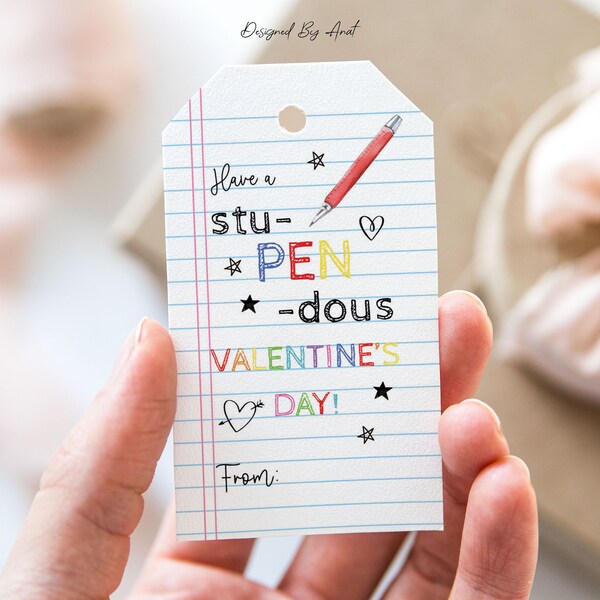 Designed By Anat
Have a
stu-
PEN
-dous
VALENTINE'S
DAY!
From: